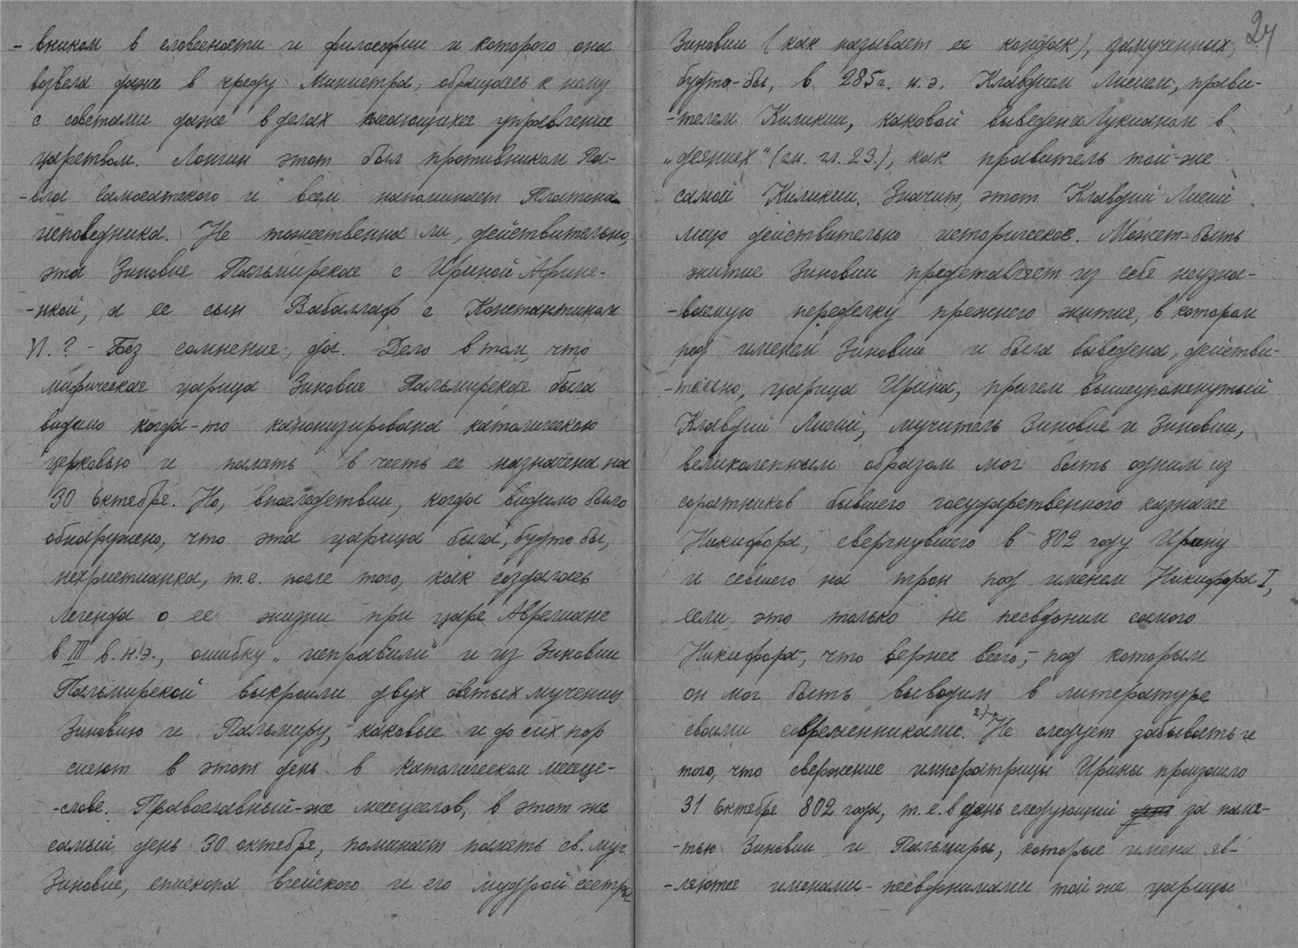 -вником в словесности и философии и которого она
возвела даже в чреду Министра, обращаясь к нему
с советами даже в делах касающихся управления
царством. Лонгин этот был противником Па-
-вла Самосатского и всем напоминает Платона
исповедника. Не тожественна ли, действительно,
эта Зиновия Пальмирская с Ириной Афине-
-нкой, а ее сын Вабаллаф с Константином
VI.? - Без сомнения, да. Дело в том, что
мифическая царица Зиновия Пальмирская была
видимо когда-то канонизирована католическою
церковью и память в честь ее назначена на
30 Октября. Но, впоследствии, когда видимо было
обнаружено, что эта царица была, будто бы,
нехристианка, т.е. после того, как создалась
легенда о ее жизни при царе Аврелиане
в III в. н.э., ошибку „исправили" и из Зиновии
Пальмирской выкроили двух святых мучениц
Зиновию и Пальмиру, каковые и до сих пор
сияют в этот день в католическом месяце-
-слове. Православный-же месяцеслов, в этот же
самый день 30 октября, поминает память св. муч.
Зиновия, епископа Егейского и его мудрой сестры
24
Зиновии (как называет ее кондак), замученных,
будто-бы, в 285 г. н.э. Клавдием Лисием, прави-
-телем Киликии, каковой выведен Лукианом в
„деяниях" (гл. 23.), как правитель той-же
самой Киликии. Значит, этот Клавдий Лисий
лицо действительно историческое. Может-быть
житие Зиновии представляет из себя неузна-
-ваемую переделку прежнего жития, в котором
под именем Зиновии и была выведена, действи-
-тельно, царица Ирина, причем вышеупомянутый
Клавдий Лисий, мучитель Зиновия и Зиновии,
великолепным образом мог быть одним из
соратников бывшего государственного казначея
Никифора, свергнувшего в 802 году Ирину
и севшего на трон под именем Никифора I,
если это только не псевдоним самого
Никифора, что вернее всего, - под которым
он мог быть выводим в литературе
своими современниками. 2) Не следует забывать и
того, что свержение императрицы Ирины произошло
31 Октября 802 года, т.е. в день следующий за памя-
-тью Зиновии и Пальмиры, которые имена яв-
-ляются именами-псевдонимами той же царицы